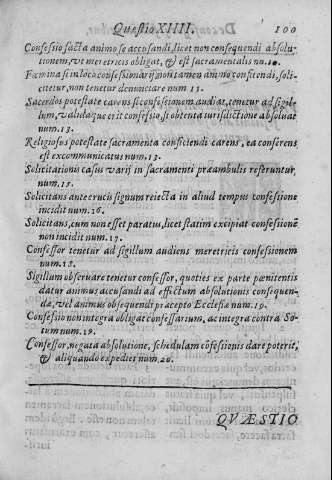 Quæstio XIIII. 100
Confessio facta animo se accusandi, licet non consequendi absolu-
tionem, vt meretricis obligat, & est sacramentalis nu. 10.
Fœmina si in loco confessionis non tamen animo confitendi, soli-
citetur, non tenetur denunciare num 11.
Sacerdos potestate carens si confessionem audiat, tenetur ad sigil-
lum, validaque erit confessio, si obtenta iurisdictione absoluat
num. 13.
Religiosus potestate sacramenta conficiendi carens, ea conferens
est excommunicatus num. 13.
Solicitationis casus varij in sacramenti præambulis referuntur
num. 15.
Solicitans ante crucis signum reiecta in aliud tempus confessione
incidit num. 16.
Solicitans, cum non esset paratus, licet statim excipiat confessionē
non incidit num. 17.
Confessor tenetur ad sigillum audiens meretricis confessionem
num. 18.
Sigillum obseruare tenetur confessor, quoties ex parte pœnitentis
datur animus accusandi ad effectum absolutionis consequen-
dæ, vel animus obsequendi præcepto Ecclesiæ num. 19.
Confessio non integra obligat confessarium, ac integra contra So-
tum num. 19.
Confessor, negata absolutione, schedulam cōfessionis dare poterit,
& aliquando expediet num 20.
QVÆSTIO